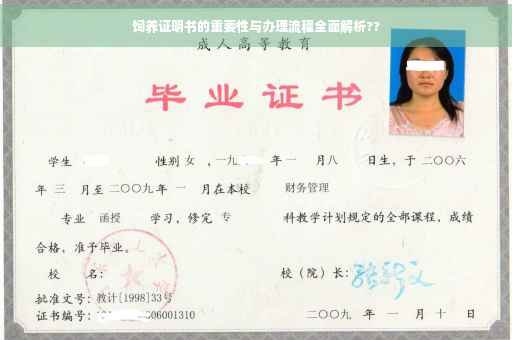 饲养证明书的重要性与办理流程全面解析??
成人高等教育
毕业证书
学生 性别 女 , 一九 年 一 月 八 日生, 于 二〇〇六
年 三 月至 二〇〇九 年 一 月在本校 财务管理
专业 函授 学习, 修完 专 科教学计划规定的全部课程, 成绩
合格, 准予毕业。
校 名: 校（院）长:
批准文号: 教计[1998]33号
证书编号: 06001310 二〇〇九 年 一 月 十 日